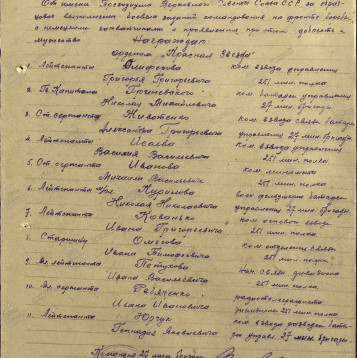 От имени Президиума Верховного Совета Союза ССР за образ-
цовое выполнение боевых заданий командования на фронте борьбы
с немецкими захватчиками и проявленные при этом доблесть и
мужество
Награждаю
орденом "Красная Звезда"
1. Лейтенанта
Григория Григорьевича
ком. взвода управления
251 мин. полка
2. Гв. Капитана
Николая Михайловича
ком. батареи управления
27 мин. бригады
3. Ст. сержанта Животенко
Александра Григорьевича
ком. взвода связи батареи
управления 27 мин. бригады
4. Лейтенанта Исаева
Василия Васильевича
ком. взвода управления
251 мин. полка
5. Ст. сержанта Иванова
Михаила Васильевича
ком. миномета
251 мин. полка
6. Лейтенанта
Николая Николаевича
управления 27 мин. бригады
7. Лейтенанта
Ивана Григорьевича
ком. огневого взвода
251 мин. полка
Старшину
Ивана Тимофеевича
ком. отделения связи
251 мин. полка
9. Лейтенанта Петухова
Ивана Васильевича
нач. связи дивизиона
251 мин. полка
10. сержанта Рябченко
Ивана Ивановича
радиотелеграфиста
251 мин. полка
11. Лейтенанта Юрчук
Геннадия
ком. взвода разведки бата-
реи управ. 27 мин. бригады
Командир 27 мин. бригады